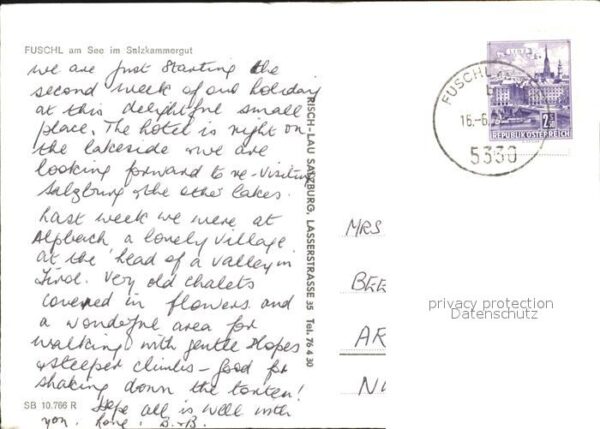 FUSCHL am See im Salzkammergut
We are just starting the
second week of our holiday
at this delightful small
place. The hotel is right on
the lakeside & we are
looking forward to re-visiting
Salzburg & the other lakes.
Last week we were at
Alpbach a lovely village
at the head of a valley in
Tirol. Very old chalets
covered in flowers and
a wonderful area for
walking with gentle slopes
& steeper climbs – good for
shaking down the torten!
Hope all is well with
you. Love, D.&B.
SB 10.766 R
RISCH-LAU SALZBURG, LASSERSTRASSE 35 Tel. 76 4 30
FUSCHL
16.-6.
5330
LINZ
2 S
REPUBLIK ÖSTERREICH
MRS
BEE
AR
N
privacy protection
Datenschutz